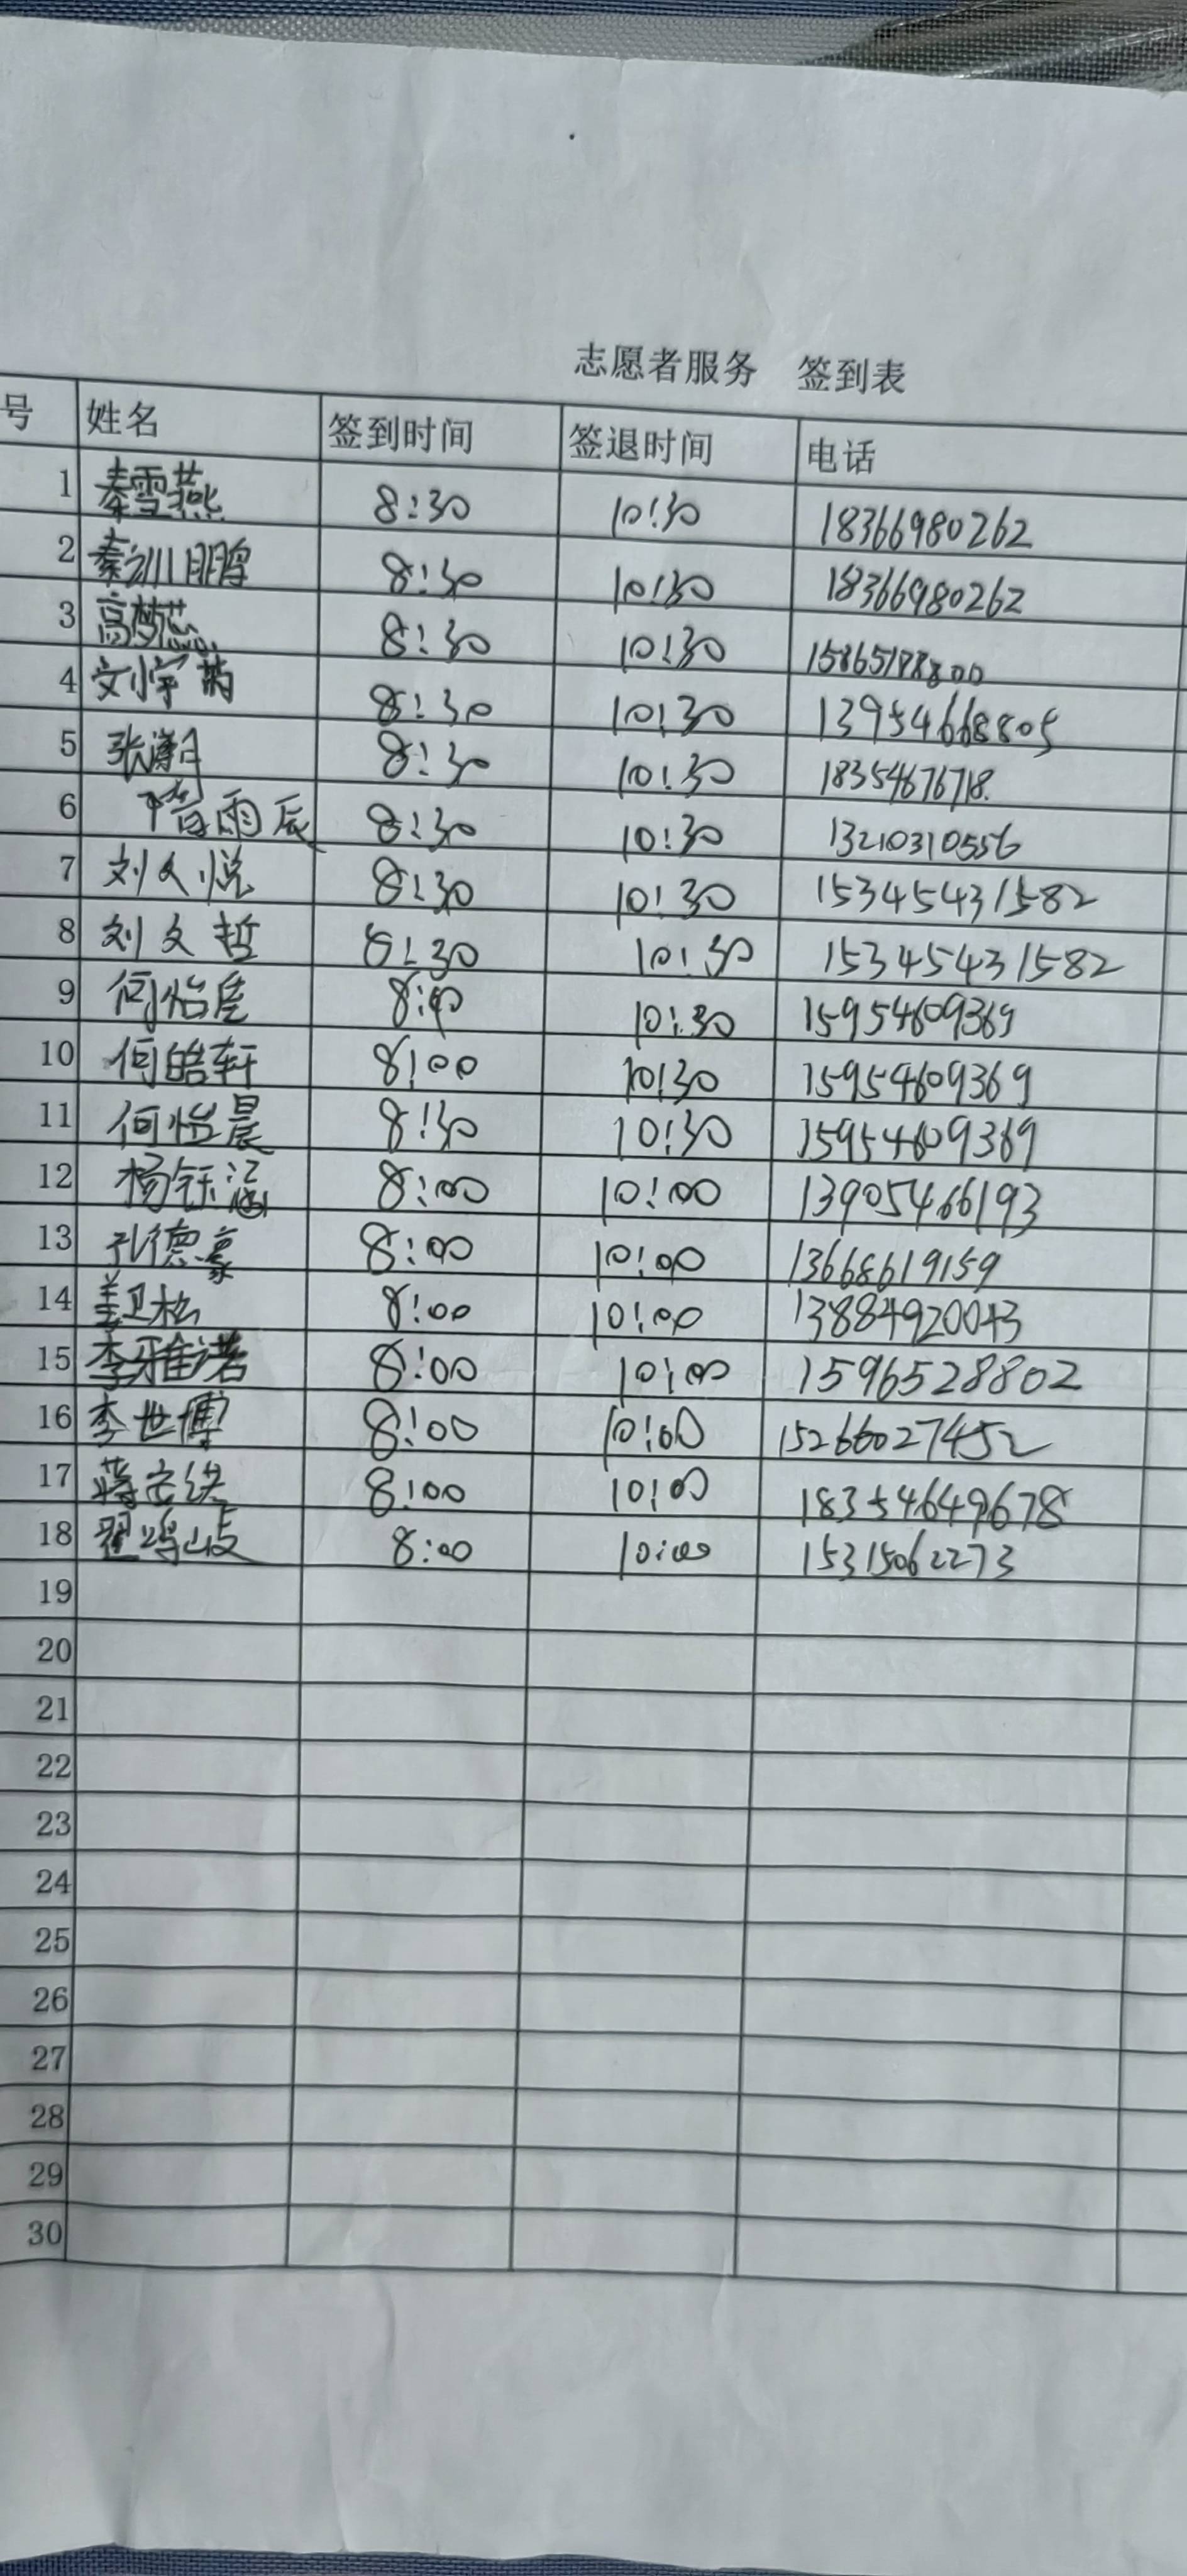 志愿者服务 签到表
号 姓名 签到时间 签退时间 电话
1 秦雪燕 8:30 10:30 18366980262
2 秦训鹏 8:30 10:30 18366980262
3 高梦蕊 8:30 10:30 15865188800
4 8:30 10:30 13954668805
5 张瀚月 8:30 10:30 18354676718.
6 隋雨辰 8:30 10:30 13210310556
7 刘文悦 8:30 10:30 15345431582
8 刘文哲 8:30 10:30 15345431582
9 10:30 15954609369
10 何皓轩 8:00 10:30 15954609369
11 何怡晨 8:30 10:30 15954609369
12 杨钰涵 8:00 10:00 13905466193
13 孔德豪 8:00 10:00 13668619159
14 姜卫松 8:00 10:00 13884920043
15 李雅诺 8:00 10:00 15965288802
16 李世博 8:00 10:00 15266027452
17 8:00 10:00 18354649678
18 8:00 10:00 15315062273
19
20
21
22
23
24
25
26
27
28
29
30